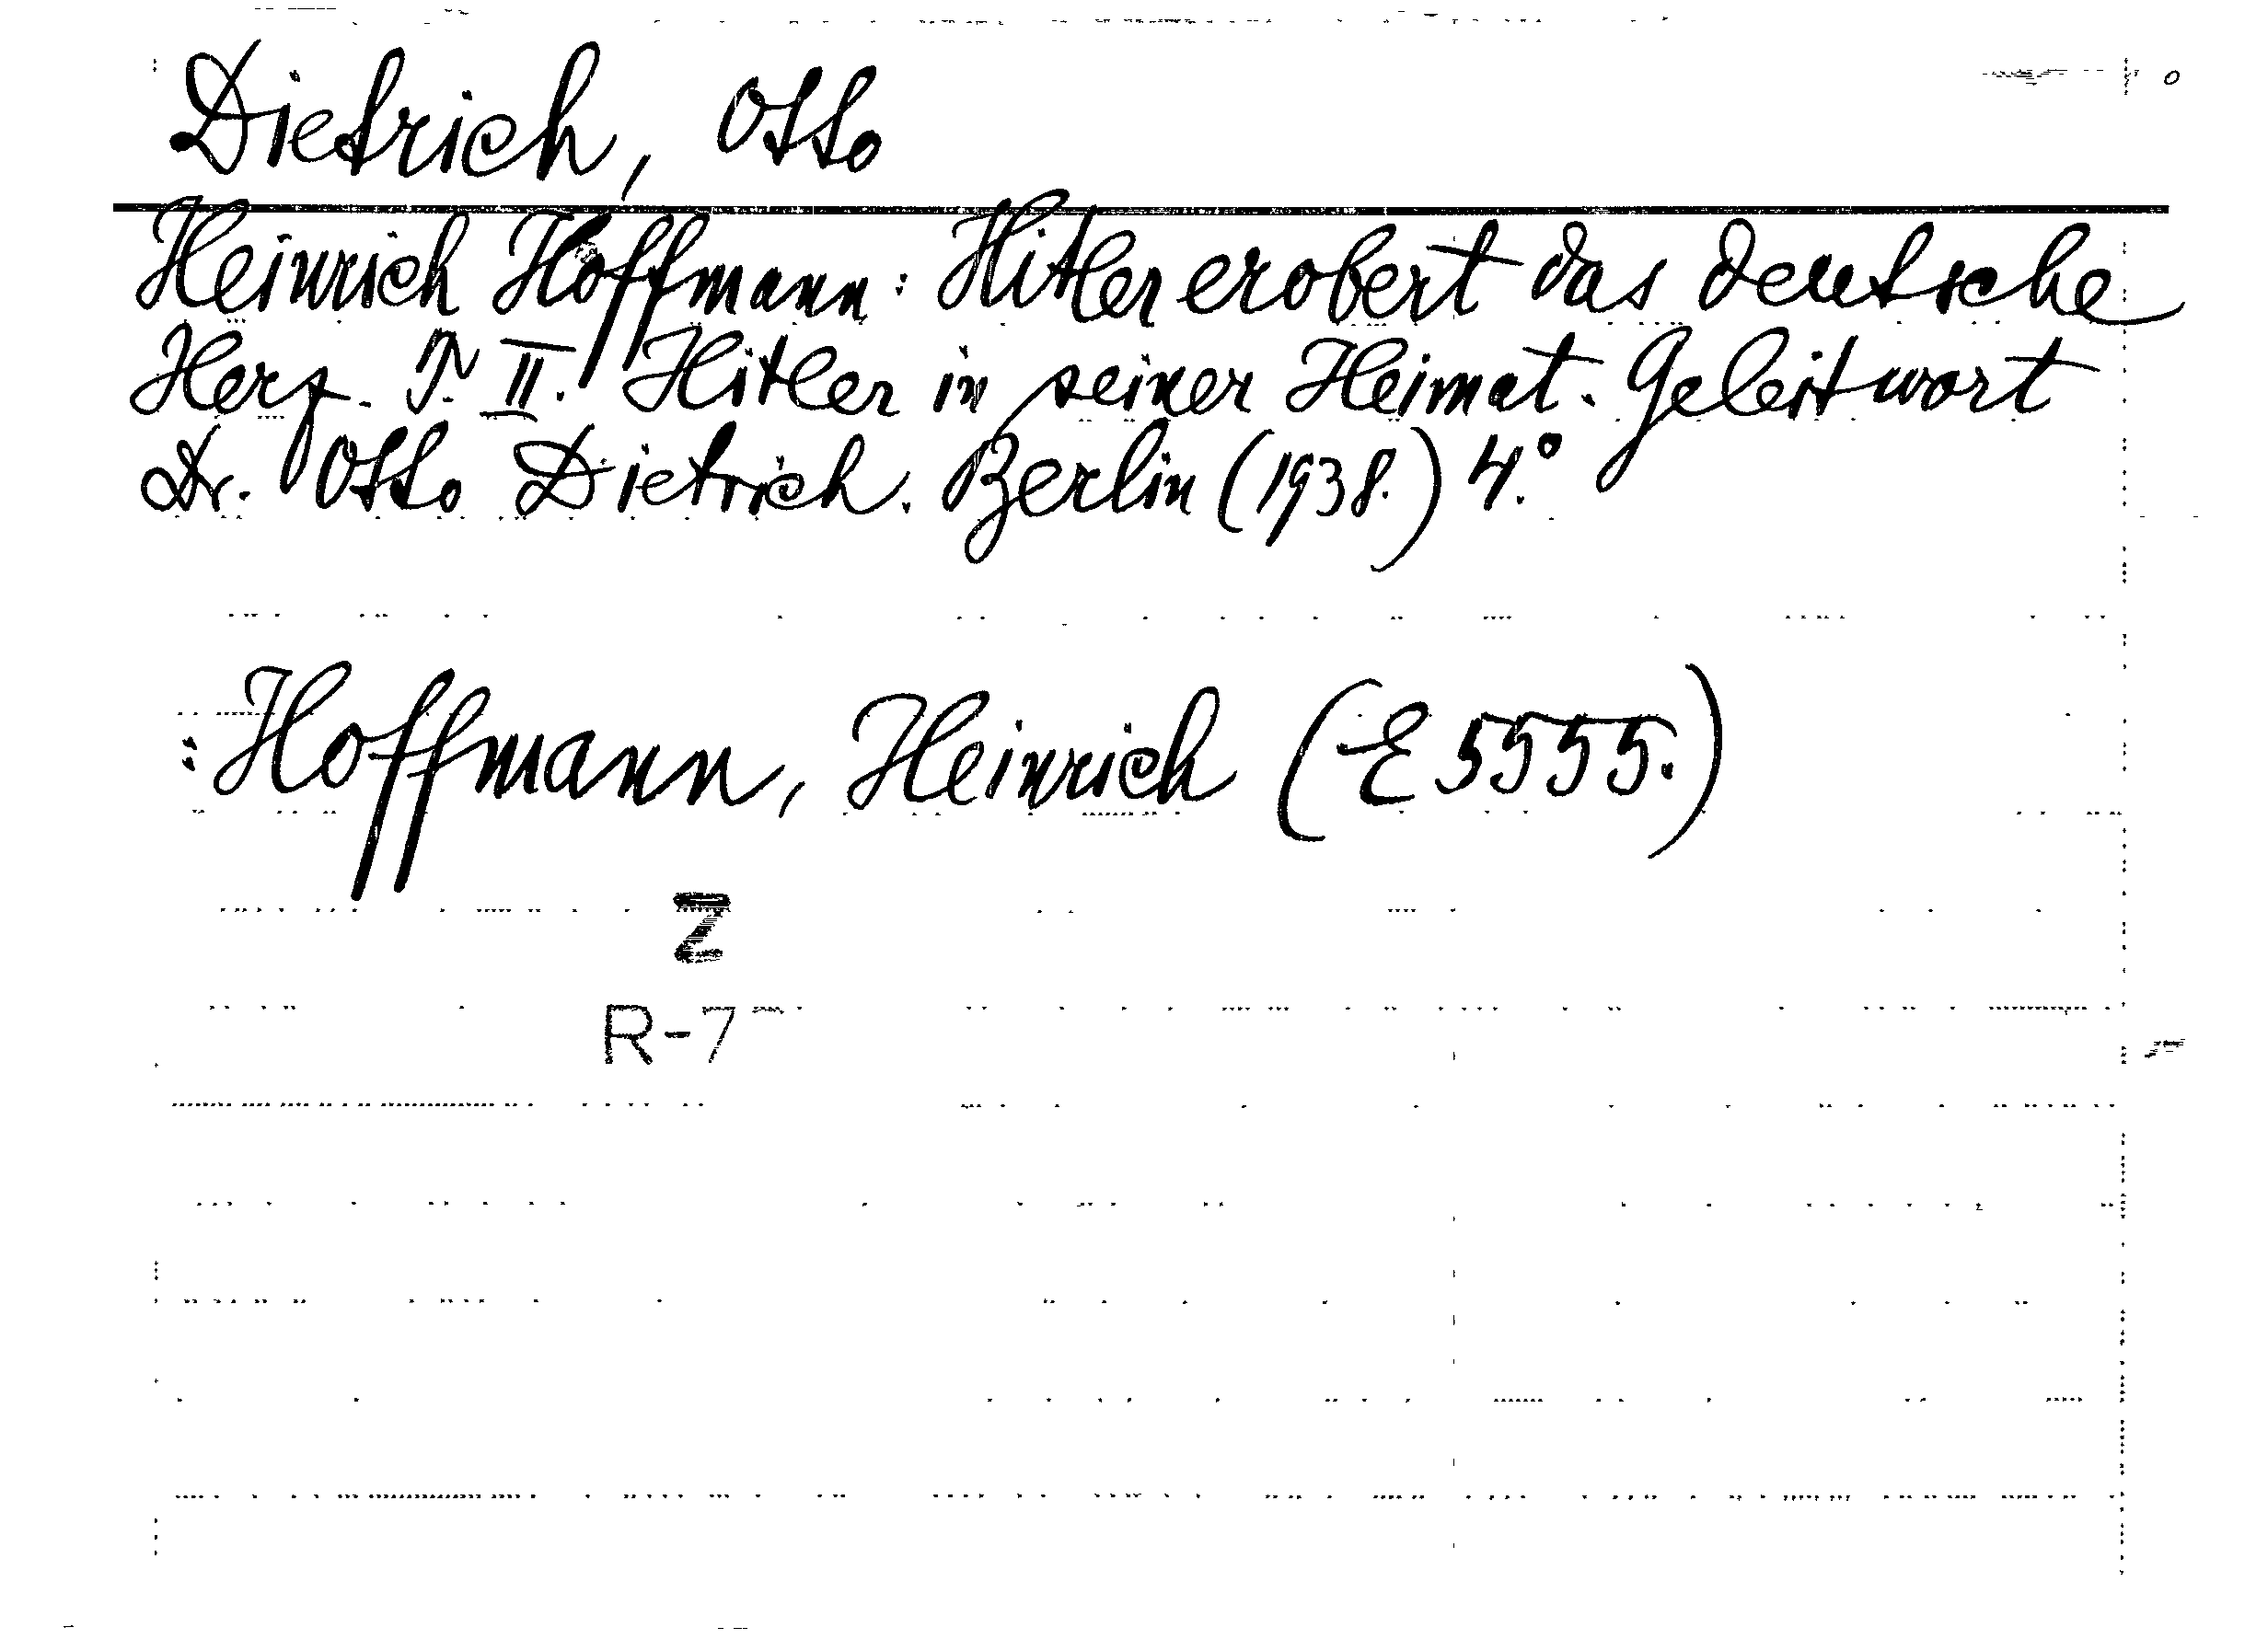 Dietrich, Otto
Heinrich Hoffmann: Hitler erobert das deutsche
Herz. T. II. Hitler in seiner Heimat. Geleitwort
Dr. Otto Dietrich. Berlin (1938.) 4.°
: Hoffmann, Heinrich (E 5555.)
Z
R-7